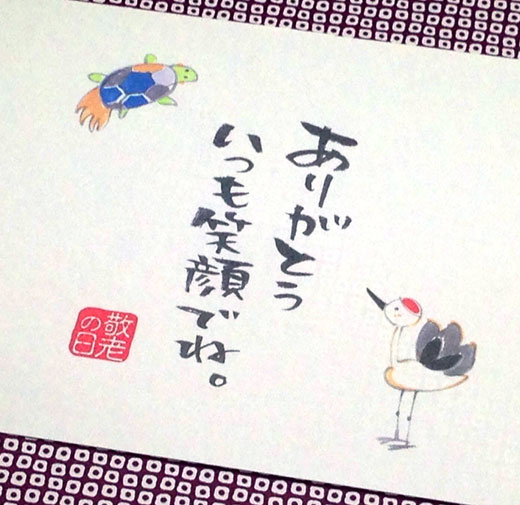 ありがとう
いつも笑顔でね。
敬老
の日